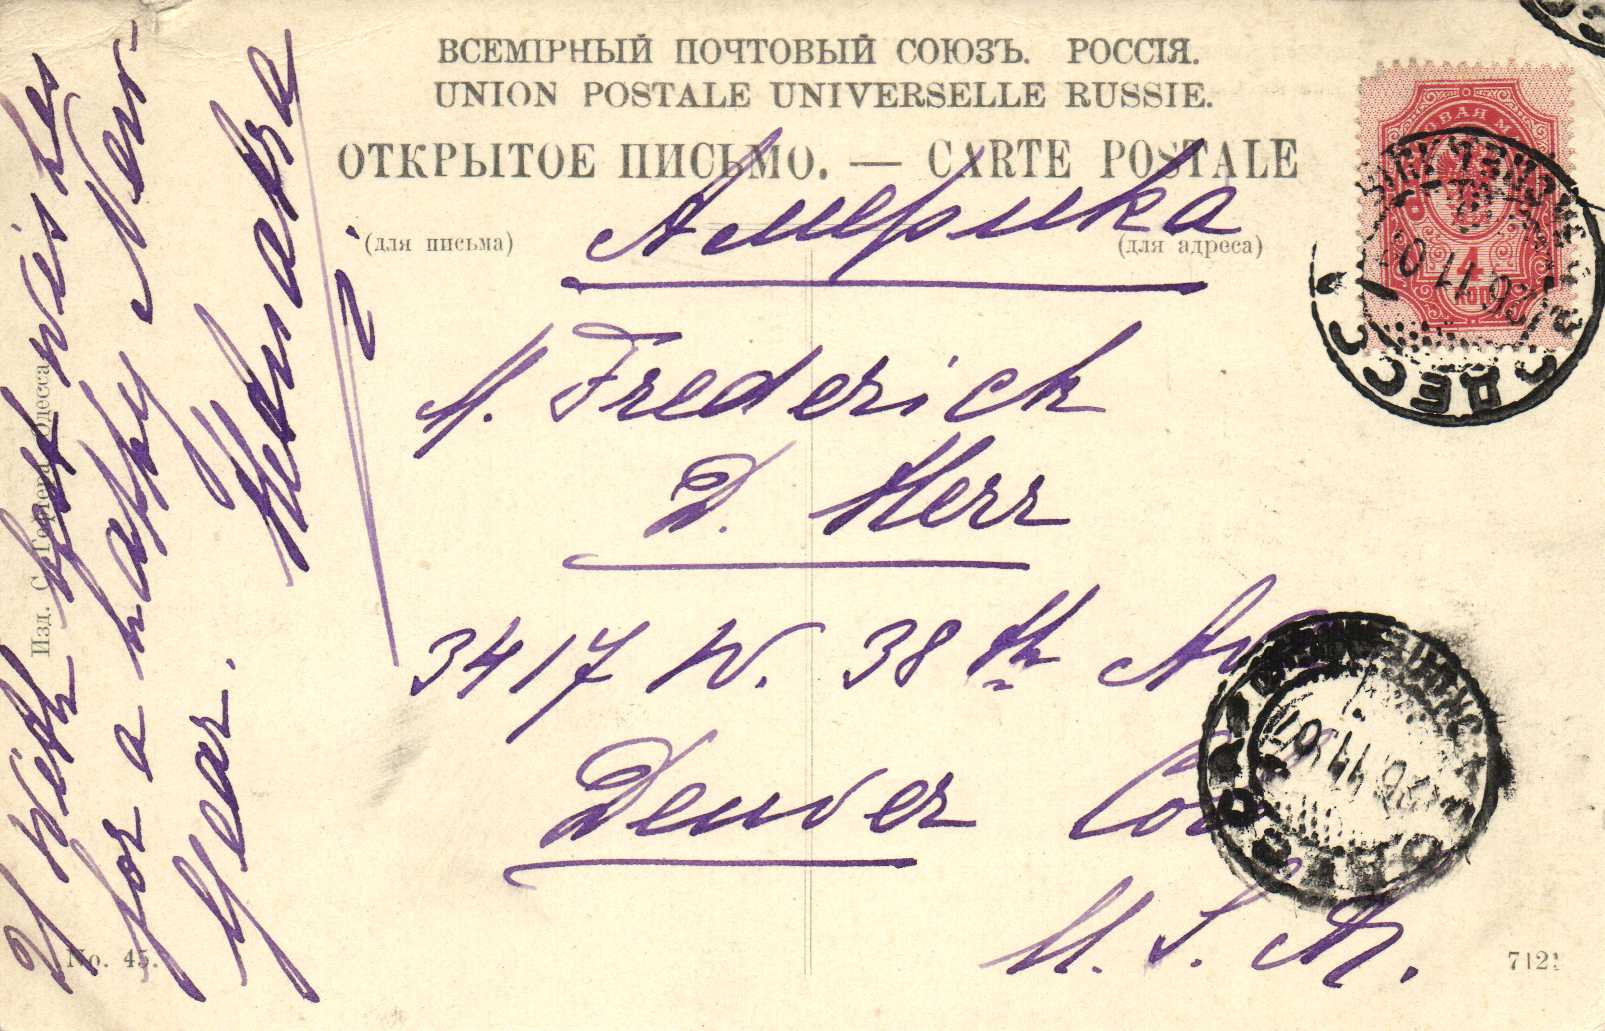 ВСЕМІРНЫЙ ПОЧТОВЫЙ СОЮЗЪ. РОССІЯ.
UNION POSTALE UNIVERSELLE RUSSIE.
ОТКРЫТОЕ ПИСЬМО. — CARTE POSTALE
(для письма)
(для адреса)
Америка
M. Frederick
D. Herr
3417 W. 38th Av
Denver Co
U. S. A.
With best wishes
for a happy New-
Year.
Изд. Одесса
No. 45.
7121
4
КОП
ОДЕССА
26 11 07
ОДЕССА
26 11 07